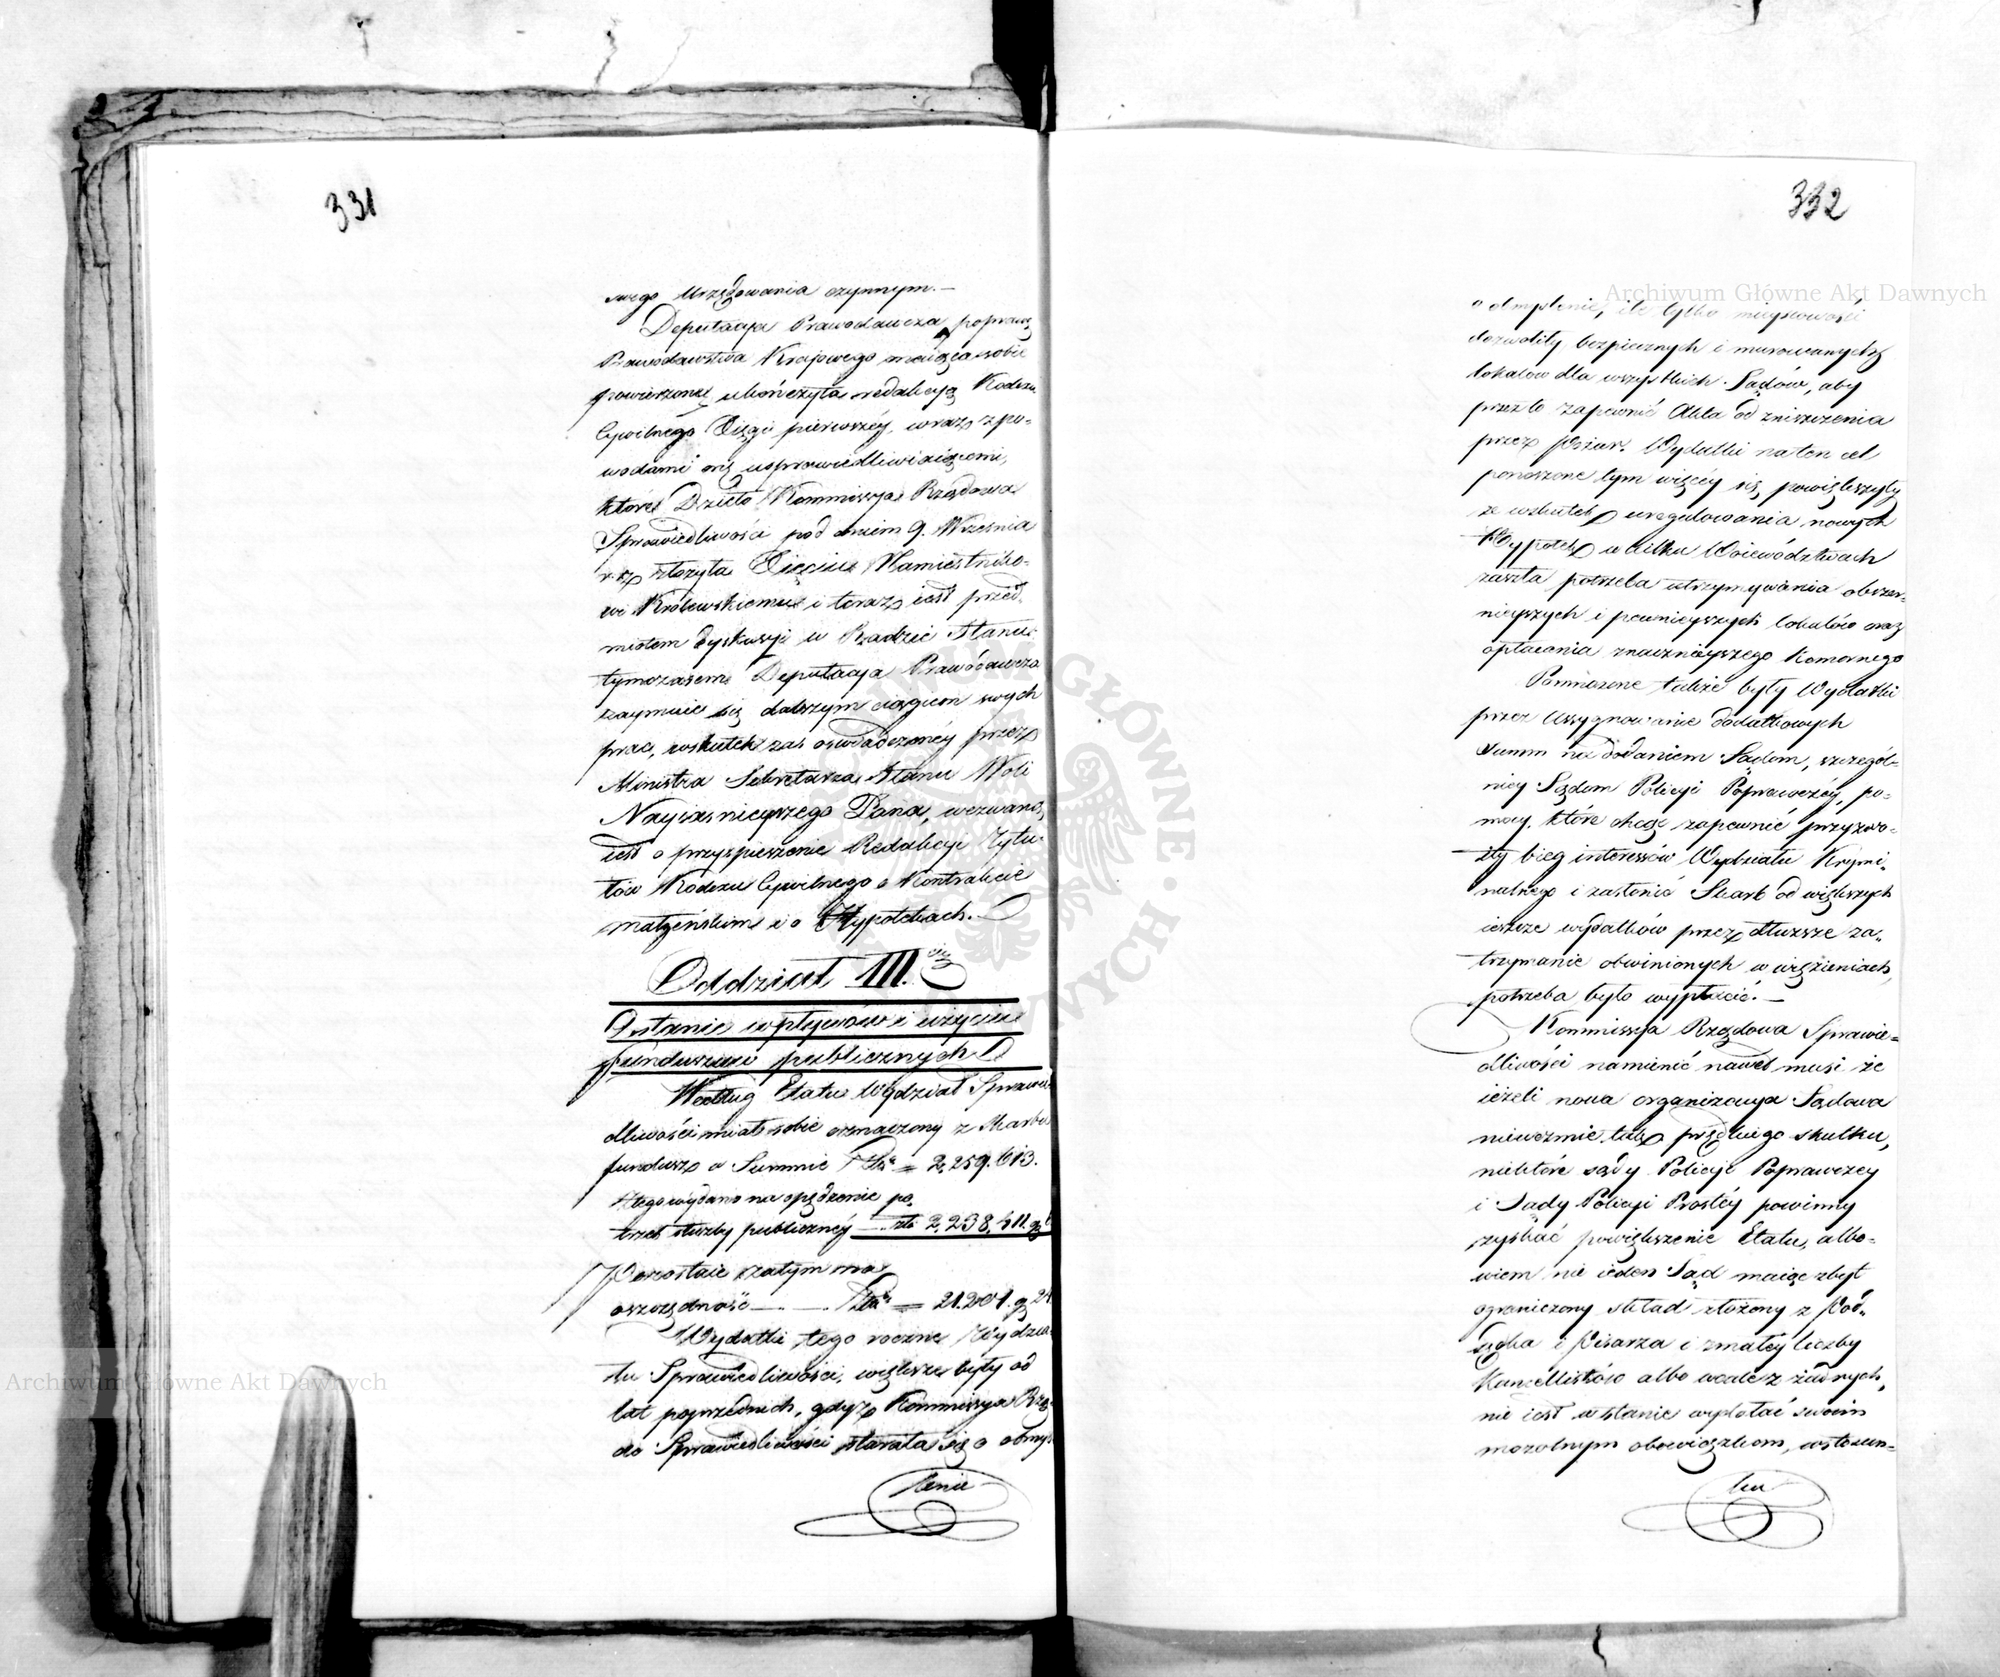 331
swego Urzędowania czynnym. —
Deputacja Prawodawcza poprawę
Prawodawstwa Krajowego maiąca sobie
powierzoną ukończyła redakcyą Kodexu
Cywilnego Xięgi pierwszéy, wraz z po-
wodami onę usprawiedliwiaiącemi,
które Dzieło Kommissya Rządowa
Sprawiedliwości pod dniem 9. Września
r. z. złożyła Xięciu Namiestniko-
wi Królewskiemu i teraz iest przed-
miotem dyskussyi w Radzie Stanu
tymczasem Deputacja Prawodawcza
zaymuie się dalszym ciągiem swych
prac, wskutek zaś oświadczonéy przez
Ministra Sekretarza Stanu Woli
Nayiaśnieyszego Pana, wezwaną
iest o przyspieszenie Redakcyi Tytu-
łów Kodexu Cywilnego o Kontrakcie
małżeńskim i o Hypotekach.
Oddział III.ci
O stanie wpływów i użyciu
funduszów publicznych
Według Etatu Wydział Sprawie-
dliwości miał sobie oznaczony z Skarbu
fundusz w Summie Złt = 2,259.613.
Z tego wydano na opędzenie po-
trzeb służby publicznéy — złt 2,238,411. g 6
Pozostaie zatym na
oszczędność — — Złt = 21.201. g 24
Wydatki tego roczne Wydzia-
łu Sprawiedliwości, większe były od
lat poprzednich, gdyż Kommissya Rzą-
do: Sprawiedliwości starała się o obmy-
ślenie
332
o obmyślenie, ile tylko mieyscowości
dozwoliły bezpiecznych i murowanych
lokalów dla wszystkich Sądów, aby
przez to zapewnić Akta od zniszczenia
przez pożar. Wydatki na ten cel
ponoszone tym więcéy się powiększyły
ze wskutek uregulowania nowych
Hypotek w kilku Woiewództwach
zaszła potrzeba utrzymywania obszer-
nieyszych i pewnieyszych lokalów oraz
opłacania znacznieyszego Komornego
Pomnożone także były Wydatki
przez Assygnowanie dodatkowych
Summ na dodaniem Sądom, szczegól-
niey Sądom Policyi Poprawczéy, po-
mocy, które chcąc zapewnić przyzwo-
ity bieg interessów Wydziału Krymi-
nalnego i zasłonić Skarb od większych
ieszcze wydatków przez dłuższe za-
trzymanie obwinionych w więzieniach,
potrzeba było wypłacić. —
Kommissya Rządowa Sprawie-
dliwości namienić nawet musi że
ieżeli nowa organizacya Sądowa
nieweźmie tak prędkiego skutku,
niektóre sądy Policyi Poprawczey
i Sądy Policyi Prostéy powinny
zyskać powiększenie Etatu, albo-
wiem nie ieden Sąd maiąc zbyt
ograniczony skład złożony z Pod-
sędka i Pisarza i z małéy liczby
Kancellistów albo wcale z żadnych,
nie iest w stanie wydołać swoim
mozolnym obowiązkom, w stosun-
ku
Archiwum Główne Akt Dawnych
Archiwum Główne Akt Dawnych